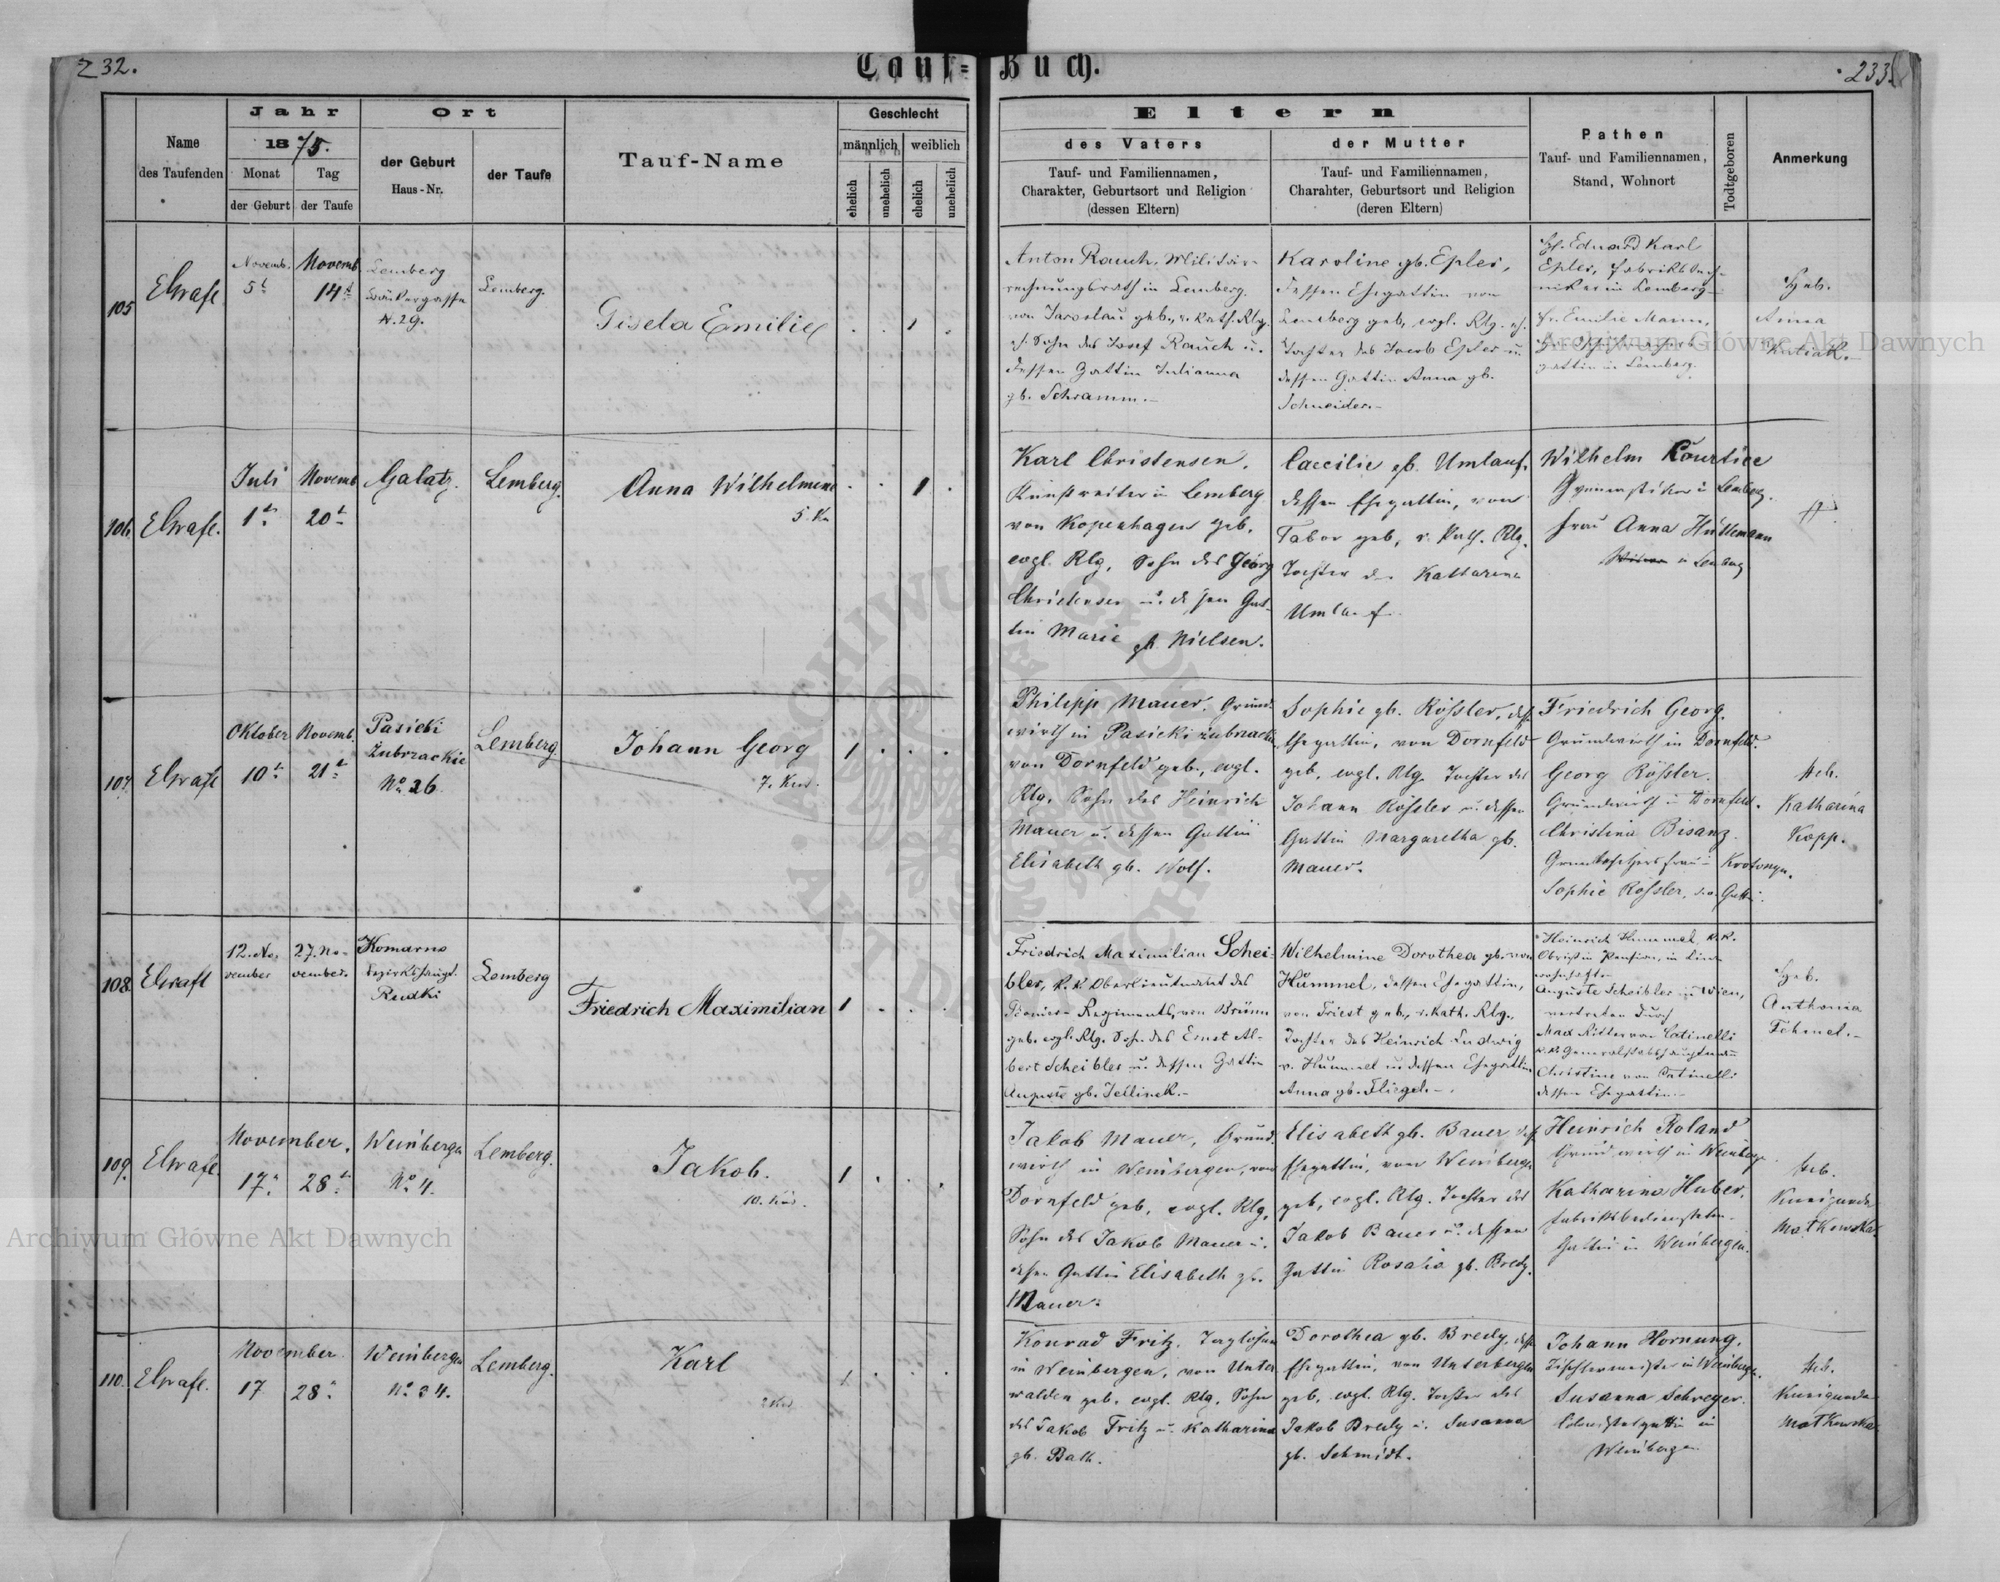 232.
Tauf-Buch.
233.
Name
des Taufenden
Jahr
1875.
Monat
der Geburt
Tag
der Taufe
Ort
der Geburt
Haus-Nr.
der Taufe
Tauf-Name
Geschlecht
männlich
weiblich
ehelich
unehelich
ehelich
unehelich
Eltern
des Vaters
Tauf- und Familiennamen,
Charakter, Geburtsort und Religion
(dessen Eltern)
der Mutter
Tauf- und Familiennamen,
Charahter, Geburtsort und Religion
(deren Eltern)
Pathen
Tauf- und Familiennamen,
Stand, Wohnort
Todtgeboren
Anmerkung
105
Novemb.
5t
Novemb.
14t
Lemberg
N. 29.
Lemberg.
Gisela Emilie
1
Anton Rauch, Militär-
rechnungsrath in Lemberg
von Jaroslau geb., r. kath. Rlg.
Sohn des Josef Rauch u.
dessen Gattin Julianna
gb. Schramm.-
Karoline gb. Epler,
dessen Ehegattin von
Lemberg geb, evgl. Rlg. eh.
Tochter des Jacob Epler u.
dessen Gattin Anna gb.
Schneider.-
H. Eduard Karl
Epler, Fabriktech-
niker in Lemberg
Fr. Emilie Mann,
gattin in Lemberg.
Heb.
Anna
106.
Juli
1t
Novemb
20t
Galatz.
Lemberg.
Anna Wilhelmine
1
Karl Christensen,
Kunstreiter in Lemberg
von Kopenhagen geb.
evgl. Rlg, Sohn des Georg
Christensen u. dessen Gat-
tin Marie gb. Nielsen.
Caecilie gb. Umlauf,
dessen Ehegattin, von
Tabor geb, r. kath. Rlg.
Tochter der Katharina
Umlauf
Wilhelm
Gymnastiker in Lemberg.
Frau Anna Hüttemann
in Lemberg
107.
Oktober
10t
Novemb.
21t
Pasieki
Zubrzackie
No 26.
Lemberg.
Johann Georg
1
Philipp Mauer, Grund-
wirth in Pasieki zubrzackie,
von Dornfeld geb., evgl.
Rlg, Sohn des Heinrich
Mauer u. dessen Gattin
Elisabeth gb. Wolf.
Sophie gb. Rößler, dess
Ehegattin, von Dornfeld
geb, evgl. Rlg. Tochter des
Johann Rößler u. dessen
Gattin Margaretha gb.
Mauer.
Friedrich Georg,
Grundwirth in Dornfeld.
Georg Rößler.
Grundwirth in Dornfeld.
Christina Bisanz
Sophie Roßler,
Heb.
Katharina
Kopp.
108.
12. No-
vember
27. No-
vember.
Komarno
Rudki
Lemberg
Friedrich Maximilian
1
Friedrich Maximilian Schei-
bler, k.k. Oberlieutnant des
Pionier Regiments, von Brünn
geb. evgl. Rlg. Sohn des Ernst Al-
bert Scheibler u. dessen Gattin
Auguste gb. Jellinek.-
Wilhelmine Dorothea gb. von
Hummel, dessen Ehegattin,
von Triest geb., r. kath. Rlg.,
Tochter des Heinrich Ludwig
v. Hummel u. dessen Ehegattin
Anna gb. Fliegel.-
Heinrich Hummel, k.k.
Obrist in Pension, in Linz
wohnhaft
Auguste Scheibler in Wien,
vertreten durch
Max Ritter von Catinelli
k.k. Generalstabshauptmann
Christine von Catinelli
dessen Ehegattin.-
Heb.
Anthonia
109.
November.
17.
28t
Weinbergen
No 4.
Lemberg.
Jakob.
1
Jakob Mauer, Grund-
wirth in Weinbergen, von
Dornfeld geb, evgl. Rlg,
Sohn des Jakob Mauer u.
dessen Gattin Elisabeth gb.
Mauer.
Elisabeth gb. Bauer dess
Ehegattin, von Weinbergen
geb, evgl. Rlg. Tochter des
Jakob Bauer u. dessen
Gattin Rosalia gb. Bredy.
Heinrich Roland
Grundwirth in Weinbergen
Katharina Huber,
Gattin in Weinbergen.
Heb.
Kunigunda
Matkowska
110.
November.
17
28
Weinbergen
No 34.
Lemberg.
Karl
1
Konrad Fritz, Taglöhner
in Weinbergen, von Unter-
walden geb. evgl. Rlg, Sohn
des Jakob Fritz u. Katharina
gb. Bath.
Dorothea gb. Bredy, dess
Ehegattin, von Unterbergen
geb, evgl. Rlg. Tochter des
Jakob Bredy u. Susanna
gb. Schmidt.
Johann Hornung,
Tischlermeister in Weinbergen.
Susanna Schreyer
Weinbergen
Heb.
Kunigunda
Matkowska
Archiwum Główne Akt Dawnych
Archiwum Główne Akt Dawnych